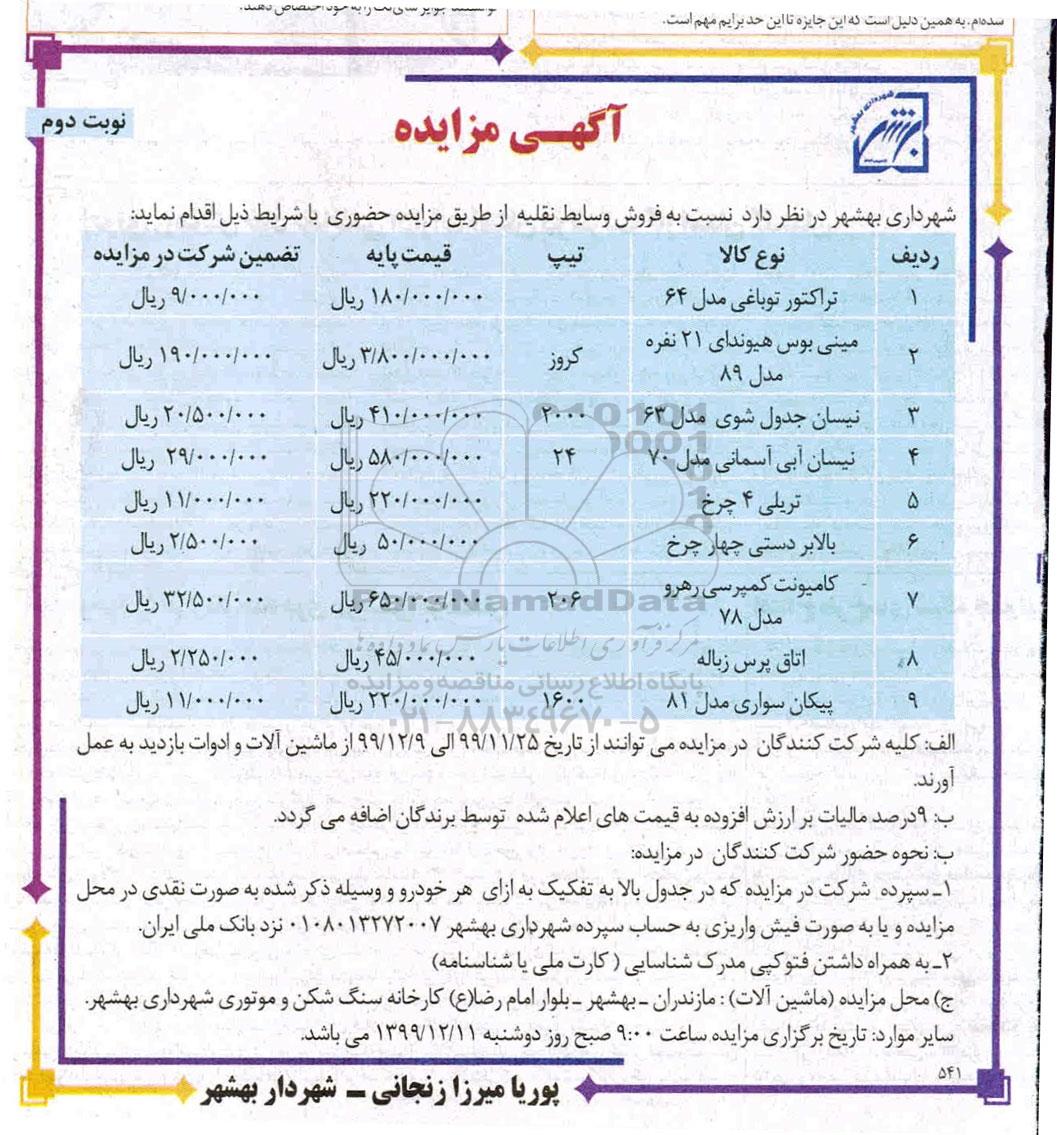 شده‌ام. به همین دلیل است که این جایزه تا این حد برایم مهم است.
آگهی مزایده
نوبت دوم
بهشهر
شهرداری بهشهر در نظر دارد نسبت به فروش وسایط نقلیه از طریق مزایده حضوری با شرایط ذیل اقدام نماید:
ردیف نوع کالا تیپ قیمت پایه تضمین شرکت در مزایده
۱ تراکتور توباغی مدل ۶۴ ۱۸۰/۰۰۰/۰۰۰ ریال ۹/۰۰۰/۰۰۰ ریال
۲ مینی بوس هیوندای ۲۱ نفره مدل ۸۹ کروز ۳/۸۰۰/۰۰۰/۰۰۰ ریال ۱۹۰/۰۰۰/۰۰۰ ریال
۳ نیسان جدول شوی مدل ۶۳ ۲۰۰۰ ۴۱۰/۰۰۰/۰۰۰ ریال ۲۰/۵۰۰/۰۰۰ ریال
۴ نیسان آبی آسمانی مدل ۷۰ ۲۴ ۵۸۰/۰۰۰/۰۰۰ ریال ۲۹/۰۰۰/۰۰۰ ریال
۵ تریلی ۴ چرخ ۲۲۰/۰۰۰/۰۰۰ ریال ۱۱/۰۰۰/۰۰۰ ریال
۶ بالابر دستی چهار چرخ ۵۰/۰۰۰/۰۰۰ ریال ۲/۵۰۰/۰۰۰ ریال
۷ کامیونت کمپرسی رهرو مدل ۷۸ ۲۰۶ ۶۵۰/۰۰۰/۰۰۰ ریال ۳۲/۵۰۰/۰۰۰ ریال
۸ اتاق پرس زباله ۴۵/۰۰۰/۰۰۰ ریال ۲/۲۵۰/۰۰۰ ریال
۹ پیکان سواری مدل ۸۱ ۱۶۰۰ ۲۲۰/۰۰۰/۰۰۰ ریال ۱۱/۰۰۰/۰۰۰ ریال
ParsNamadData
مرکز فرآوری اطلاعات پارس نماد داده‌ها
پایگاه اطلاع رسانی مناقصه و مزایده
۰۲۱-۸۸۳۴۹۶۷۰-۵
الف: کلیه شرکت کنندگان در مزایده می توانند از تاریخ ۹۹/۱۱/۲۵ الی ۹۹/۱۲/۹ از ماشین آلات و ادوات بازدید به عمل
آورند.
ب: ۹درصد مالیات بر ارزش افزوده به قیمت های اعلام شده توسط برندگان اضافه می گردد.
ب: نحوه حضور شرکت کنندگان در مزایده:
۱ـ سپرده شرکت در مزایده که در جدول بالا به تفکیک به ازای هر خودرو و وسیله ذکر شده به صورت نقدی در محل
مزایده و یا به صورت فیش واریزی به حساب سپرده شهرداری بهشهر ۰۱۰۸۰۱۳۳۷۲۰۰۷ نزد بانک ملی ایران.
۲ـ به همراه داشتن فتوکپی مدرک شناسایی ( کارت ملی یا شناسنامه)
ج) محل مزایده (ماشین آلات) : مازندران ـ بهشهر ـ بلوار امام رضا(ع) کارخانه سنگ شکن و موتوری شهرداری بهشهر.
سایر موارد: تاریخ برگزاری مزایده ساعت ۹:۰۰ صبح روز دوشنبه ۱۳۹۹/۱۲/۱۱ می باشد.
۵۴۱
پوریا میرزا زنجانی ـ شهردار بهشهر